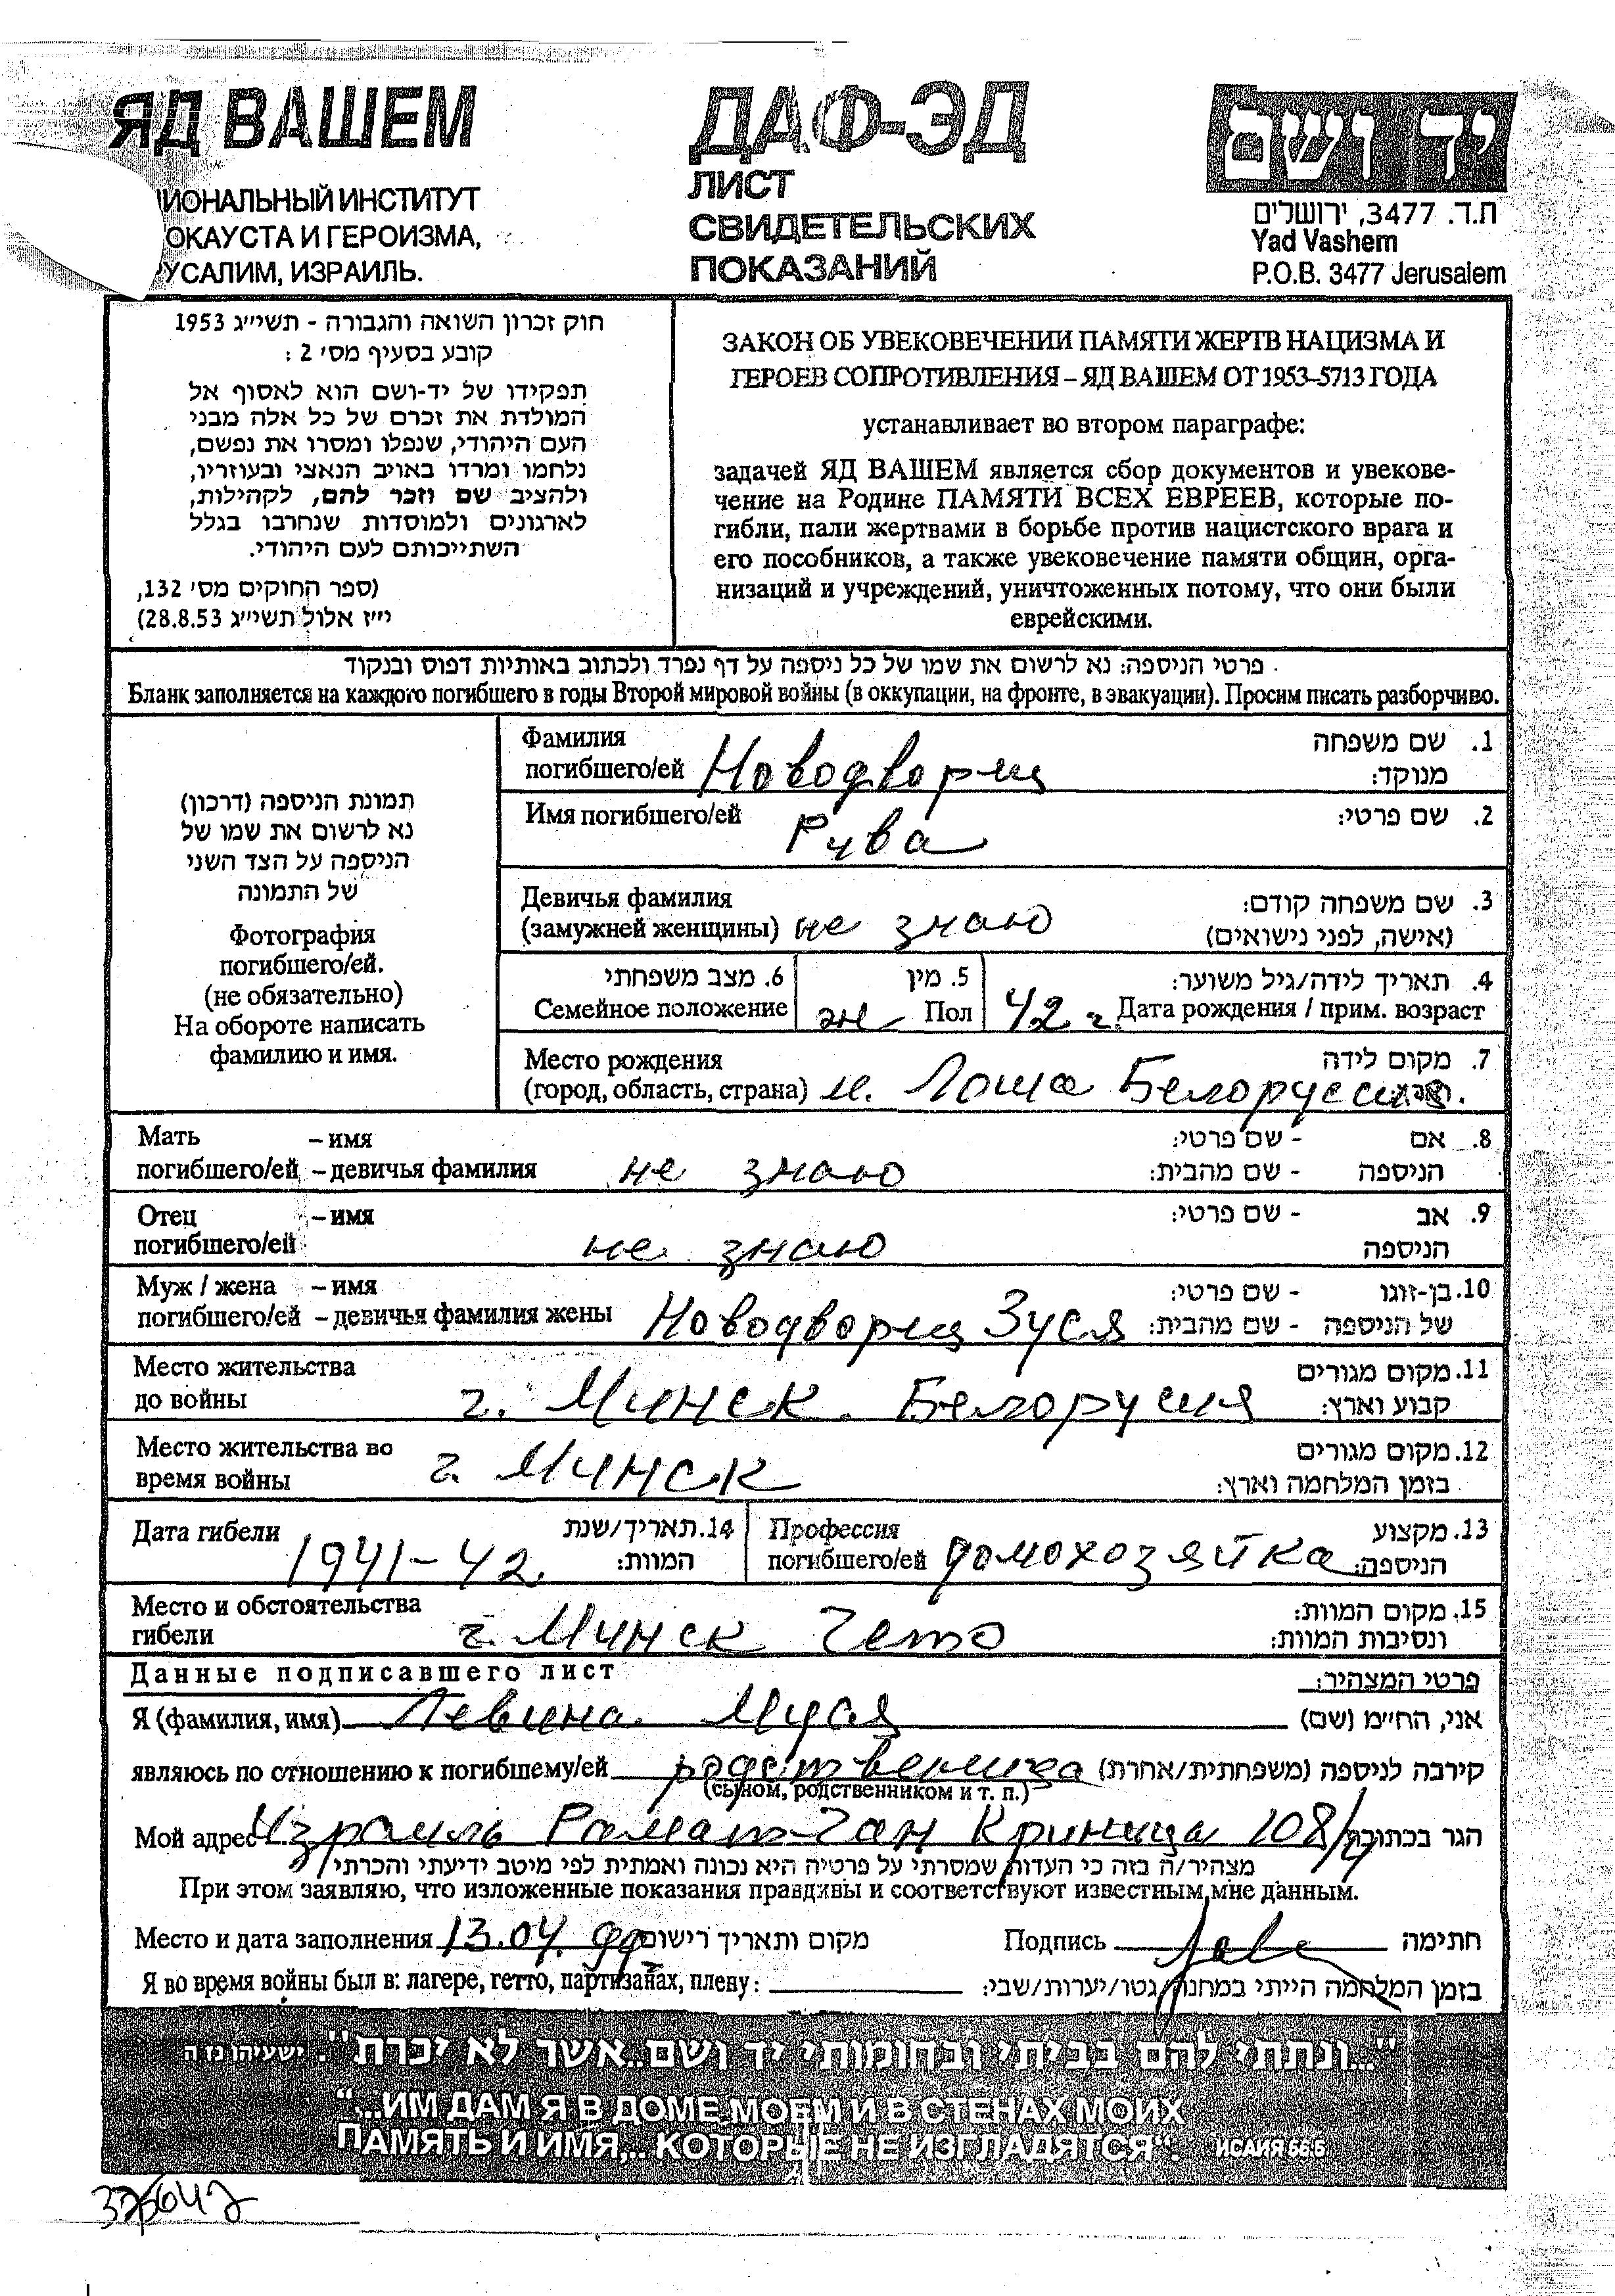 ЯД ВАШЕМ
ИОНАЛЬНЫЙ ИНСТИТУТ
ОКАУСТА И ГЕРОИЗМА,
РУСАЛИМ, ИЗРАИЛЬ.
ДАФ-ЭД
ЛИСТ
СВИДЕТЕЛЬСКИХ
ПОКАЗАНИЙ
יד ושם
ת.ד. 3477, ירושלים
Yad Vashem
P.O.B. 3477 Jerusalem
חוק זכרון השואה והגבורה - תשי״ג 1953
קובע בסעיף מס׳ 2 :
תפקידו של יד-ושם הוא לאסוף אל
המולדת את זכרם של כל אלה מבני
העם היהודי, שנפלו ומסרו את נפשם,
נלחמו ומרדו באויב הנאצי ובעוזריו,
ולהציב שם וזכר להם, לקהילות,
לארגונים ולמוסדות שנחרבו בגלל
השתייכותם לעם היהודי.
(ספר החוקים מס׳ 132,
י״ז אלול תשי״ג 28.8.53)
ЗАКОН ОБ УВЕКОВЕЧЕНИИ ПАМЯТИ ЖЕРТВ НАЦИЗМА И
ГЕРОЕВ СОПРОТИВЛЕНИЯ – ЯД ВАШЕМ ОТ 1953–5713 ГОДА
устанавливает во втором параграфе:
задачей ЯД ВАШЕМ является сбор документов и увекове-
чение на Родине ПАМЯТИ ВСЕХ ЕВРЕЕВ, которые по-
гибли, пали жертвами в борьбе против нацистского врага и
его пособников, а также увековечение памяти общин, орга-
низаций и учреждений, уничтоженных потому, что они были
еврейскими.
פרטי הניספה: נא לרשום את שמו של כל ניספה על דף נפרד ולכתוב באותיות דפוס ובנקוד
Бланк заполняется на каждого погибшего в годы Второй мировой войны (в оккупации, на фронте, в эвакуации). Просим писать разборчиво.
תמונת הניספה (דרכון)
נא לרשום את שמו של
הניספה על הצד השני
של התמונה
Фотография
погибшего/ей.
(не обязательно)
На обороте написать
фамилию и имя.
Фамилия 1. שם משפחה
погибшего/ей Новодворец מנוקד:
Имя погибшего/ей Рива 2. שם פרטי:
Девичья фамилия 3. שם משפחה קודם:
(замужней женщины) не знаю (אישה, לפני נישואים)
6. מצב משפחתי 5. מין 4. תאריך לידה/גיל משוער:
Семейное положение ж Пол 42 г. Дата рождения / прим. возраст
Место рождения 7. מקום לידה
(город, область, страна) м. Лоша Белоруссия.
Мать – имя - שם פרטי: 8. אם
погибшего/ей – девичья фамилия не знаю - שם מהבית: הניספה
Отец – имя - שם פרטי: 9. אב
погибшего/ей не знаю הניספה
Муж / жена – имя - שם פרטי: 10. בן-זוגו
погибшего/ей – девичья фамилия жены Новодворец Зуся - שם מהבית: של הניספה
Место жительства 11. מקום מגורים
до войны г. Минск. Белорусия קבוע וארץ:
Место жительства во 12. מקום מגורים
время войны г. Минск בזמן המלחמה וארץ:
Дата гибели 1941-42. 14. תאריך/שנת המוות:
Профессия 13. מקצוע
погибшего/ей домохозяйка הניספה:
Место и обстоятельства 15. מקום המוות:
гибели г. Минск Гето ונסיבות המוות:
Данные подписавшего лист פרטי המצהיר:
Я (фамилия, имя) Левина Муся אני, הח״מ (שם)
являюсь по отношению к погибшему/ей родственица קירבה לניספה (משפחתית/אחרת)
(сыном, родственником и т. п.)
Мой адрес Израиль Рамат-Ган Криница 108/ הגר בכתובת
מצהיר/ה בזה כי העדות שמסרתי על פרטיה היא נכונה ואמתית לפי מיטב ידיעתי והכרתי
При этом заявляю, что изложенные показания правдивы и соответствуют известным мне данным.
Место и дата заполнения 13.04.99 מקום ותאריך רישום Подпись חתימה
Я во время войны был в: лагере, гетто, партизанах, плену: בזמן המלחמה הייתי במחנה/גטו/יערות/שבי:
"...ונתתי להם בביתי ובחומותי יד ושם..אשר לא יכרת". ישעיהו נו ה
"...ИМ ДАМ Я В ДОМЕ МОЕМ И В СТЕНАХ МОИХ
ПАМЯТЬ И ИМЯ,.. КОТОРЫЕ НЕ ИЗГЛАДЯТСЯ". ИСАИЯ 56.5